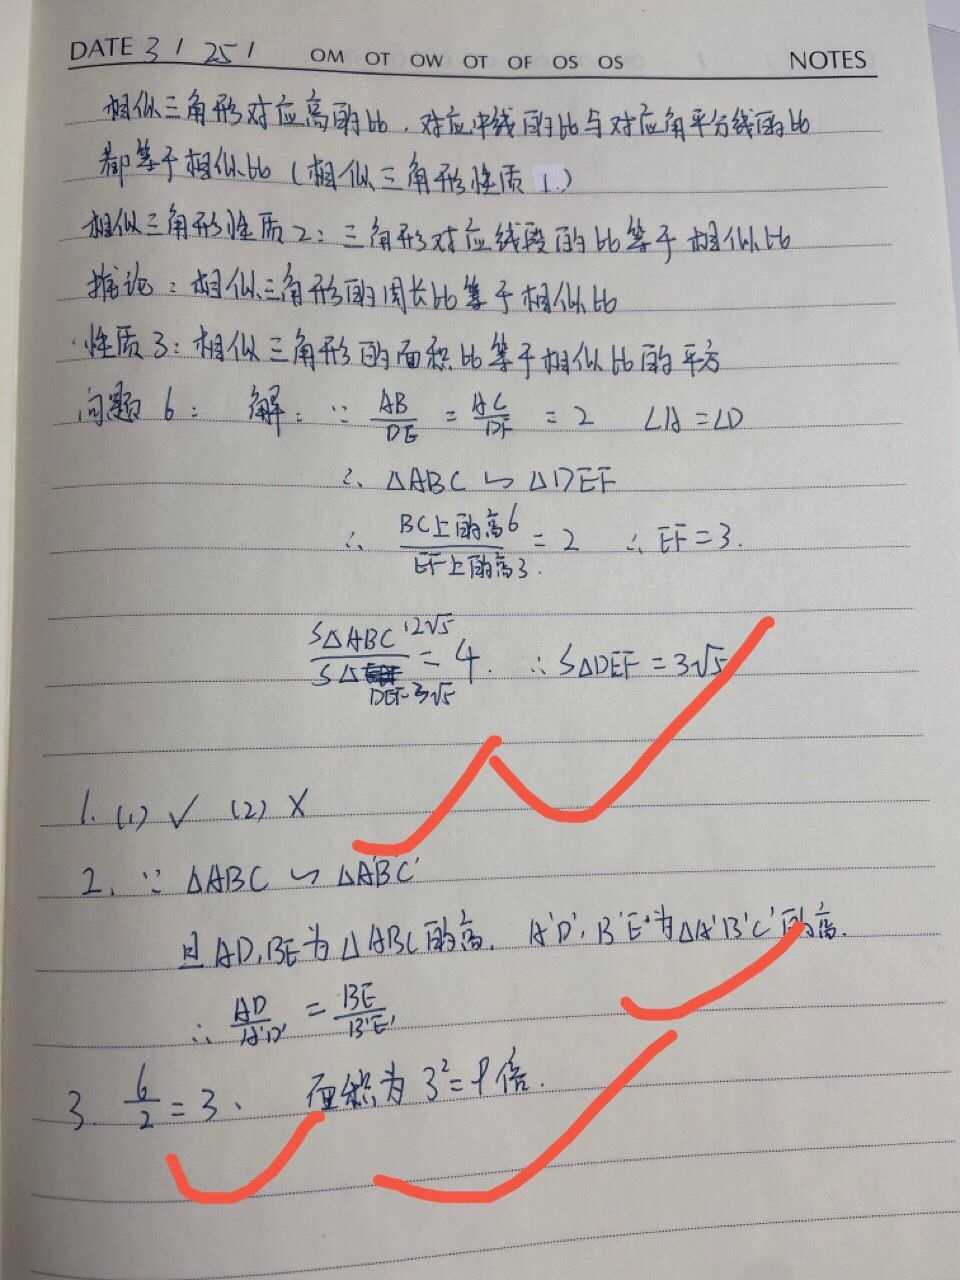 DATE 3 / 25 / OM OT OW OT OF OS OS NOTES
相似三角形对应高的比、对应中线的比与对应角平分线的比
都等于相似比(相似三角形性质1.)
相似三角形性质2:三角形对应线段的比等于相似比
推论:相似三角形的周长比等于相似比
·性质3:相似三角形的面积比等于相似比的平方
问题6: 解:∵ AB/DE = AC/DF = 2 ∠A=∠D
∴ △ABC ∽ △DEF
∴ BC上的高6/EF上的高3. = 2 ∴ EF=3.
S△ABC 12√5/S△DEF 3√5 = 4. ∴ S△DEF = 3√5
1. (1) ✓ (2) ×
2. ∵ △ABC ∽ △A'B'C'
且AD,BE为△ABC的高. A'D',B'E'为△A'B'C'的高.
∴ AD/A'D' = BE/B'E'
3. 6/2 = 3、 面积为3²=9倍.